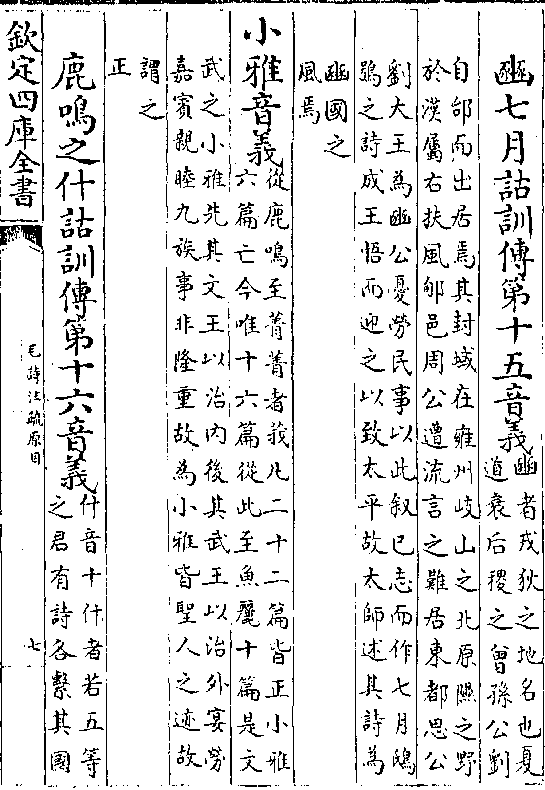 豳七月詁訓傳第十五音義豳者戎狄之地名也夏
道衰后稷之曾孫公劉
自邰而出居焉其封域在雍州岐山之北原隰之野
於漢屬右扶風郇邑周公遭流言之難居東都思公
劉大王為豳公憂勞民事以此叙已志而作七月鴟
鴞之詩成王悟而迎之以致太平故太師述其詩為
豳國之
風焉
小雅音義從鹿鳴至菁菁者莪凡二十二篇皆正小雅
六篇亡今唯十六篇從此至魚麗十篇是文
武之小雅先其文王以治內後其武王以治外宴勞
嘉賓親睦九族事非隆重故為小雅皆聖人之迹故
謂之
正
鹿鳴之什詁訓傳第十六音義什音十什者若五等
之君有詩各繫其國
欽定四庫全書
毛詩注疏原目
七